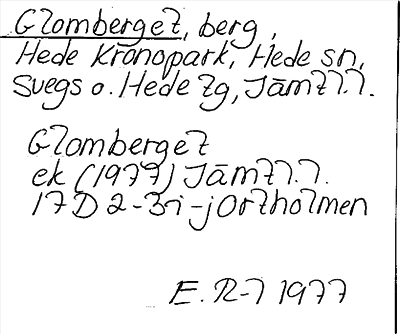 Glomberget, berg,
Hede Kronopark, Hede sn,
Svegs o. Hede tg, Jämtl.l.
Glomberget
ek (1977) Jämtl.l.
17D 2-3i-j Ortholmen
E. R-l 1977